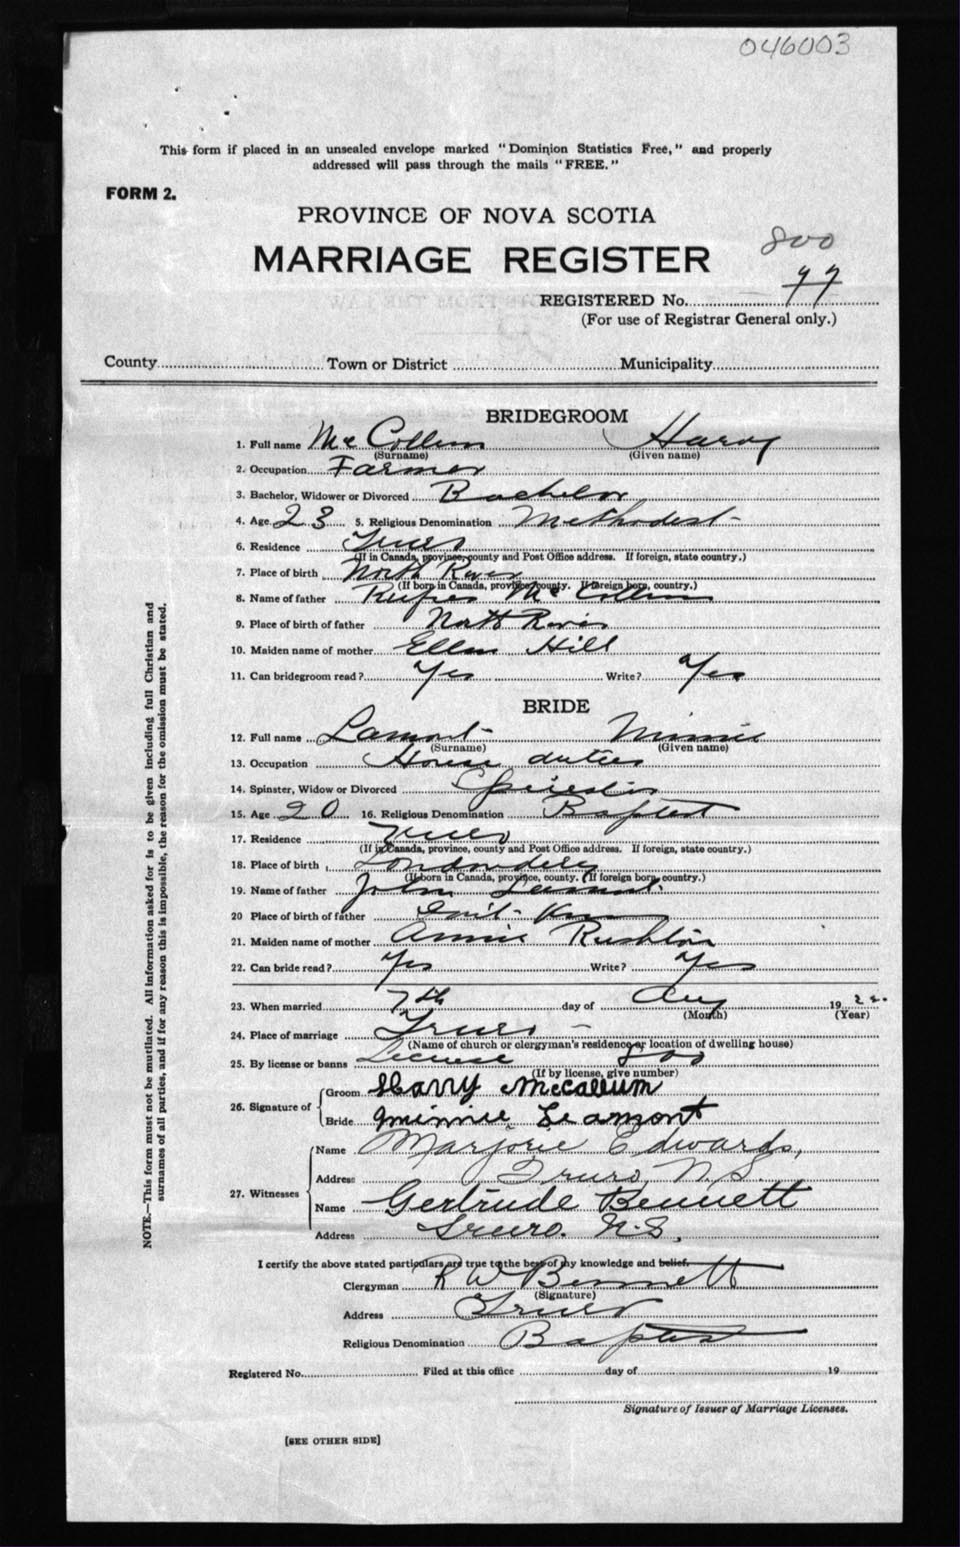 046003
This form if placed in an unsealed envelope marked "Dominion Statistics Free," and properly
addressed will pass through the mails "FREE."
FORM 2.
PROVINCE OF NOVA SCOTIA
800
MARRIAGE REGISTER
REGISTERED No. 77
(For use of Registrar General only.)
County Town or District Municipality
BRIDEGROOM
1. Full name McCollum Harvy
(Surname) (Given name)
2. Occupation Farmer
3. Bachelor, Widower or Divorced Bachelor
4. Age 23 5. Religious Denomination Methodist
6. Residence Truro
(If in Canada, province, county and Post Office address. If foreign, state country.)
7. Place of birth North River
(If born in Canada, province, county. If foreign born, country.)
8. Name of father Rufus McCollum
9. Place of birth of father North River
10. Maiden name of mother Ellen Hill
11. Can bridegroom read? Yes Write? Yes
BRIDE
12. Full name Lamont Minnie
(Surname) (Given name)
13. Occupation House duties
14. Spinster, Widow or Divorced Spinster
15. Age 20 16. Religious Denomination Baptist
17. Residence Truro
(If in Canada, province, county and Post Office address. If foreign, state country.)
18. Place of birth Londonderry
(If born in Canada, province, county. If foreign born, country.)
19. Name of father John Lamont
20 Place of birth of father Don't Know
21. Maiden name of mother Annie Rushton
22. Can bride read? Yes Write? Yes
23. When married 7th day of Aug 1922.
(Month) (Year)
24. Place of marriage Truro -
(Name of church or clergyman's residence or location of dwelling house)
25. By license or banns License 800
(If by license, give number)
26. Signature of Groom Harry McCallum
Bride Minnie Leamont
27. Witnesses
Name Marjorie Edwards,
Address Truro, N.S.
Name Gertrude Bennett
Address Truro. N.S.
I certify the above stated particulars are true to the best of my knowledge and belief.
Clergyman R W Bennett
(Signature)
Address Truro
Religious Denomination Baptist
Registered No. Filed at this office day of 19
Signature of Issuer of Marriage Licenses.
[SEE OTHER SIDE]
NOTE.—This form must not be mutilated. All information asked for is to be given including full Christian and
surnames of all parties, and if for any reason this is impossible, the reason for the omission must be stated.